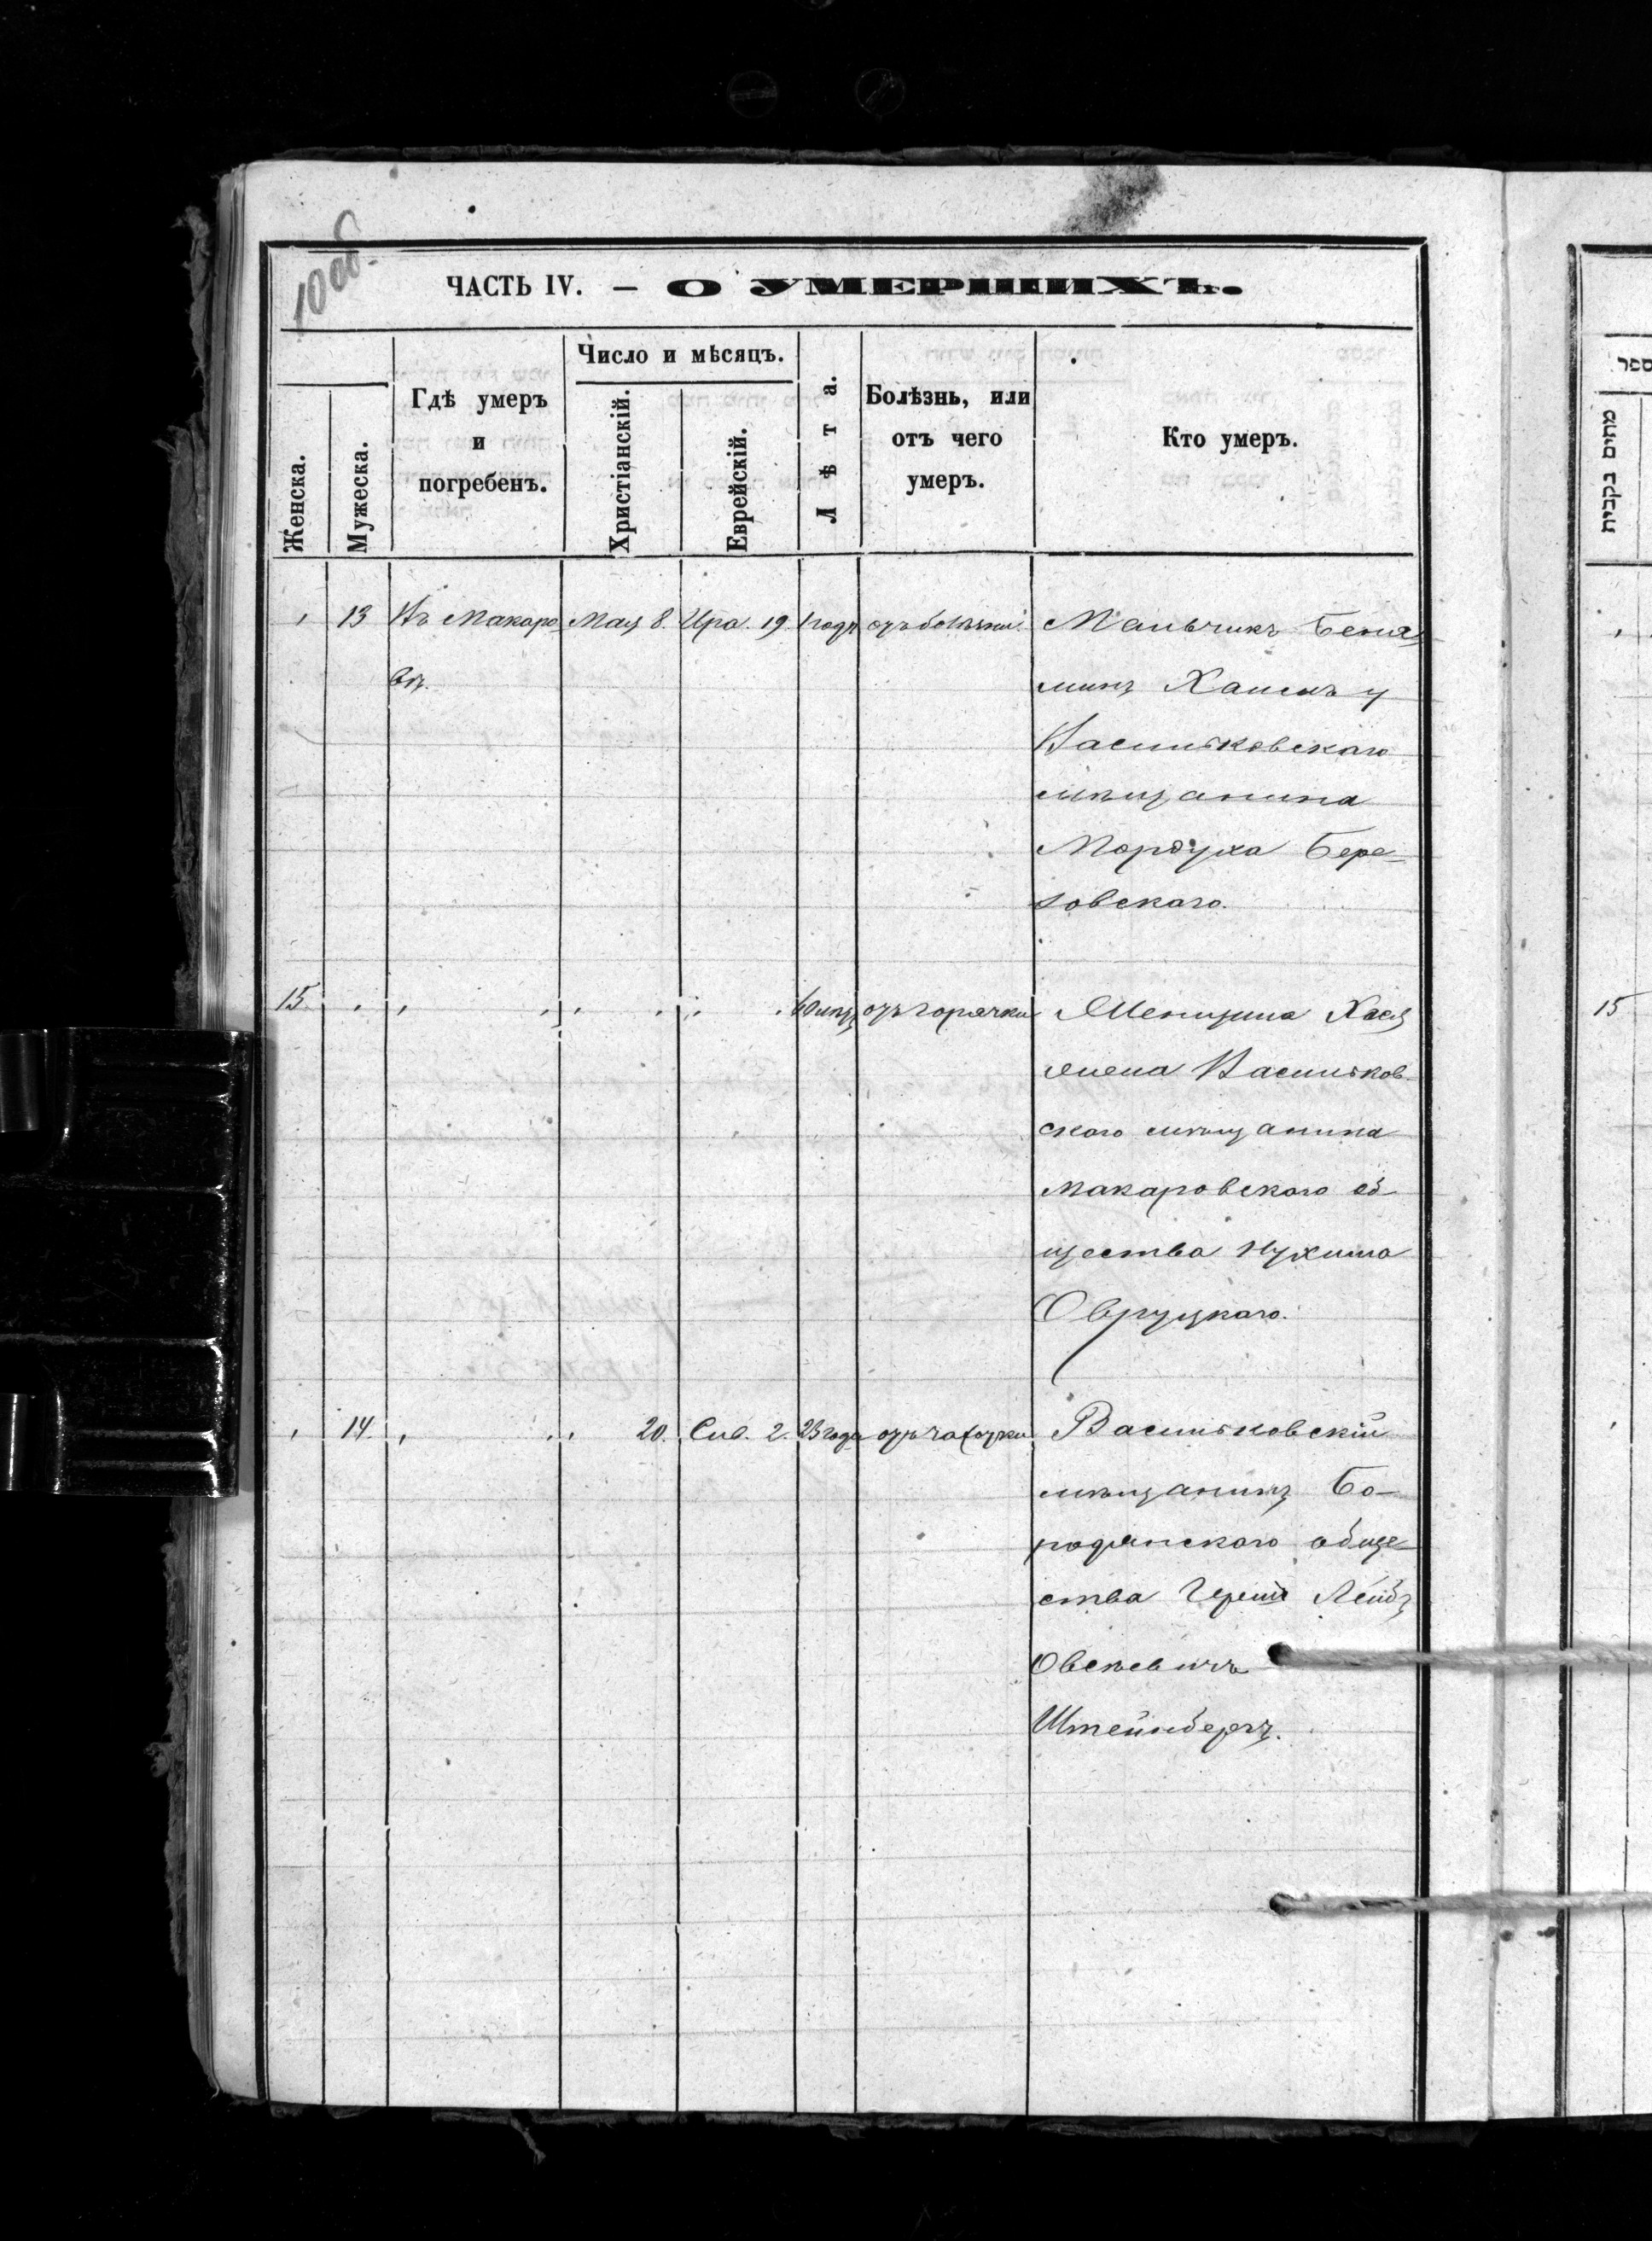 100об.
ЧАСТЬ IV. — О УМЕРШИХЪ.
Женска.
Мужеска.
Гдѣ умеръ
и
погребенъ.
Число и мѣсяцъ.
Христіанскій.
Еврейскій.
Лѣта.
Болѣзнь, или
отъ чего
умеръ.
Кто умеръ.
13 Въ Макаро- Мая 8. Ира. 19. 1 годъ Мальчикъ Беніа-
вѣ.
минъ Хаимъ у
Васильковскаго
мѣщанина
Мордуха Бере-
зовскаго.
15. отъ горячки Женщина Хася
жена Васильков-
ского мѣщанина
Макаровского об-
щества Нухима
Овруцкаго.
14. 20. Сив. 2. 23 года отъ чахотки Васильковскій
мѣщанинъ Бо-
родянского обще-
ства Герш Лейбъ
Овсѣевичъ
Штейнбергъ.
ספר
מתים בקבית
15